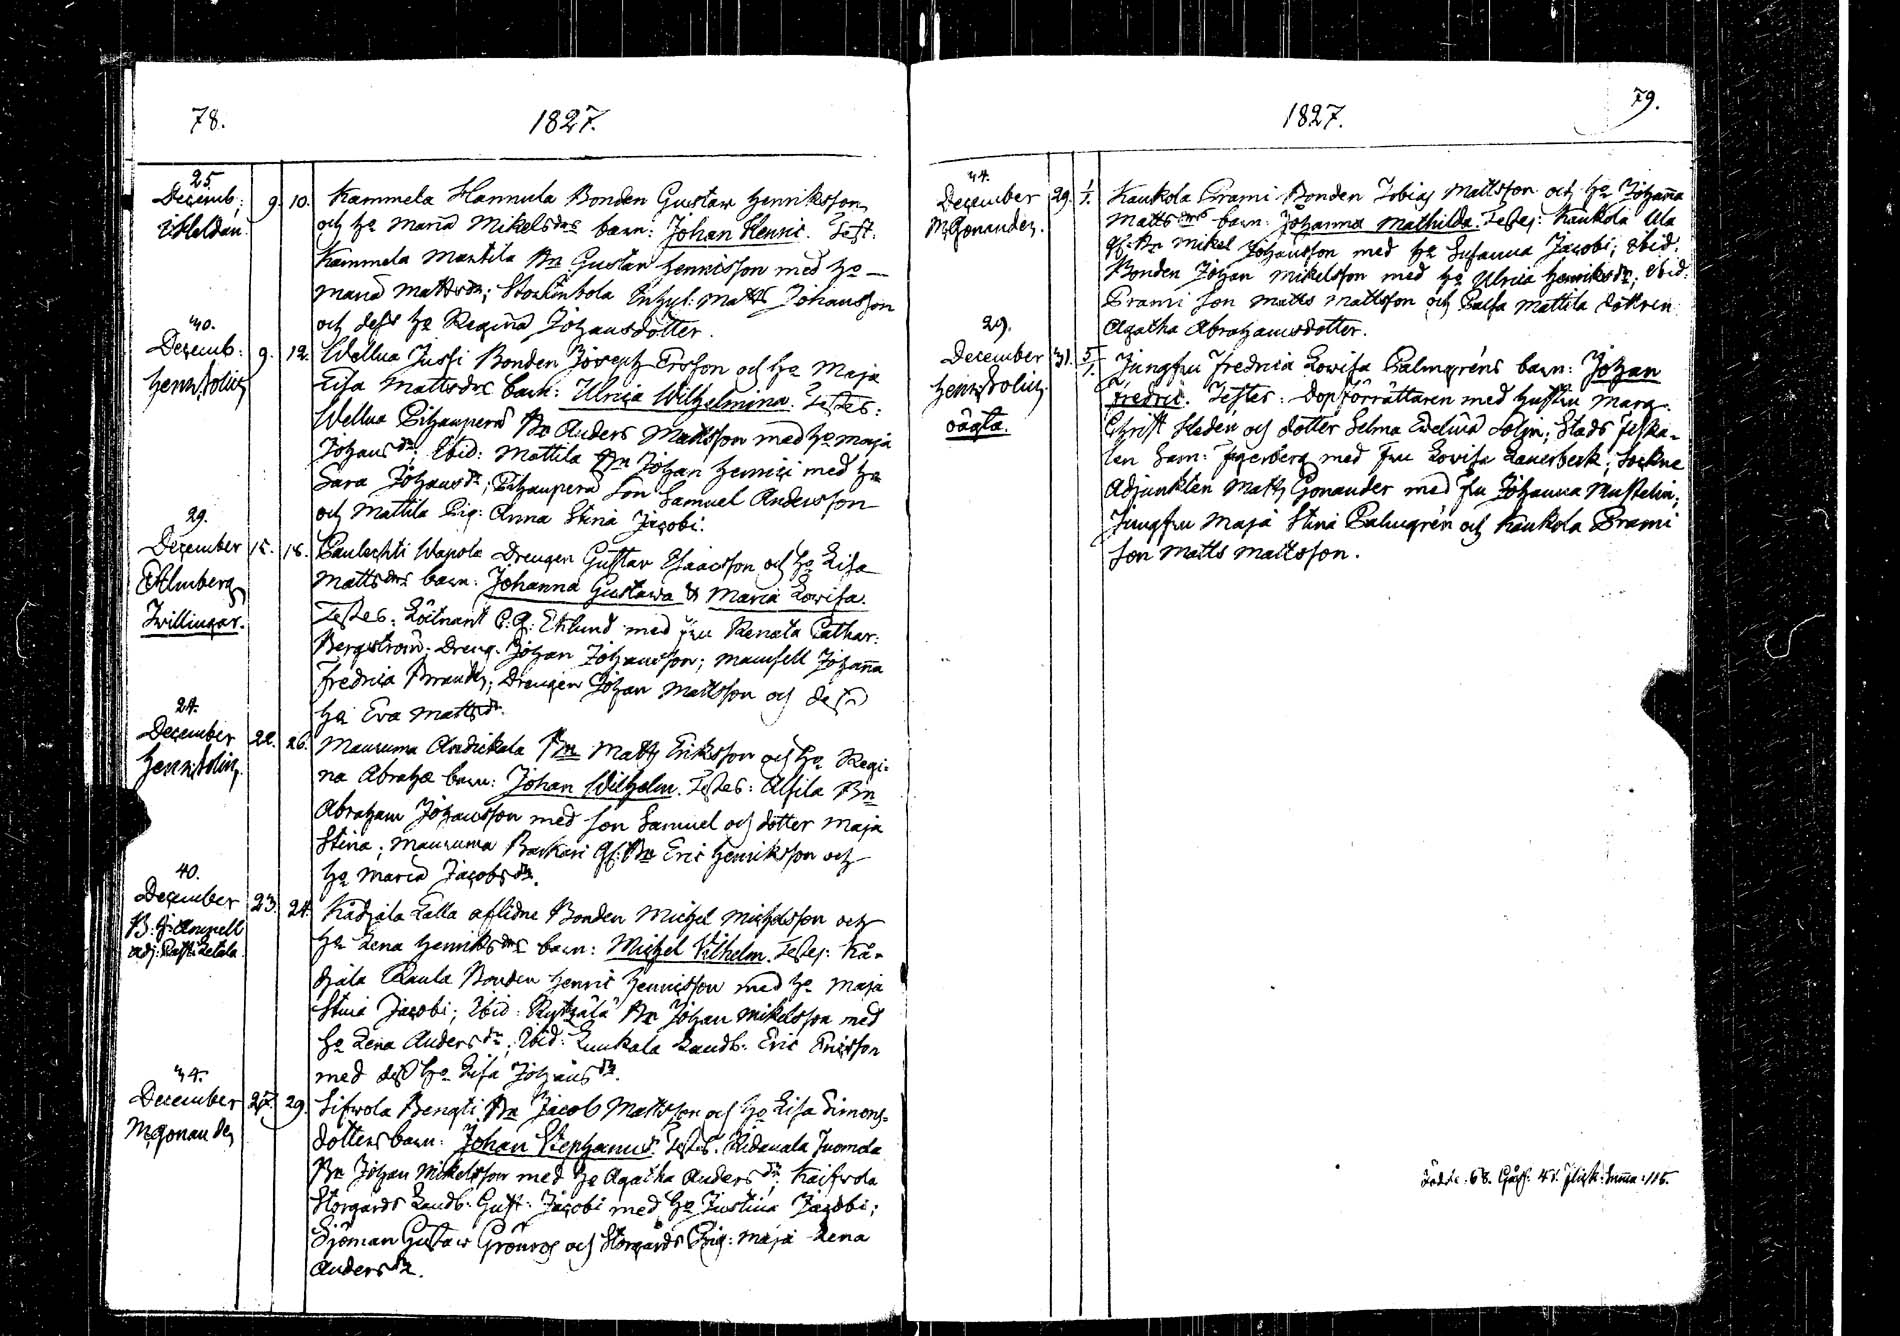 78.
1827.
25.
Decemb:
E Heldan
9. 10.
Kammela Hannula Bonden Gustav Henriksson
och ha Maria Mikelsdrs barn: Johan Henric. Test:
Kammela Mantila Bn Gustav Henriksson med ha
Maria Mattsdr; Inhys: Matts Johansson
och dess ha Regina Johansdotter.
30.
Decemb:
Henr. Tolin
9. 12.
Wellua Jussi Bonden Joseph Ersson och ha Maja
Lisa Mattsdrs barn: Ulrica Wilhelmina. Testes:
Wellua Bn Anders Mattsson med ha Maja
Johansdr; Ibid: Mattila Bn Johan Henrici med ha
Sara Johansdr; son Samuel Andersson
och Mattila Pig: Anna Stina Jacobi.
29.
December
Almberg
Twillingar.
15. 18.
Wapola Drengen Gustav Isaacsson och ha Lisa
Mattsdrs barn: Johanna Gustava & Maria Lovisa.
Testes: Löitnant C. G. Eklund med fru Renata Cathar:
Bergström; Dreng. Johan Johansson; Mamsell Johanna
Fredrica Brander; Drengen Johan Mattsson och dess
ha Eva Mattsdr.
24.
December
Henr. Tolin
22. 26.
Maunuma Andickala Bn Matts Eriksson och ha Regi-
na Abrahae barn: Johan Wilhelm. Testes: Alsila Bn
Abraham Johansson med son Samuel och dotter Maja
Stina; Maunuma Backari Gl: Bn Eric Henriksson och
ha Maria Jacobsdr.
40.
December
B. F. Ampell
adj:
23. 24.
Kådjala Talla aflidne Bonden Michel Michelsson och
ha Lena Henriksdrs barn: Michel Vilhelm. Testes: Kå-
djala Raula Bonden Henric Henricsson med ha Maja
Stina Jacobi; Ibid: Bn Johan Mikelsson med
ha Lena Andersdr; Ibid: Luukala Landb: Eric Ericsson
med dess ha Lisa Johansdr.
34.
December
M. Gonander
27. 29.
Sifvola Bengti Bn Jacob Mattsson och ha Lisa Simons-
dotters barn: Johan Stephanus. Testes: Juomola
Bn Johan Mikelsson med ha Agatha Andersdr; Kaifvola
Storgårds Landb: Gust: Jacobi med ha Justina Jacobi;
Sjöman Gustav Grönros och Storgårds Pig: Maja Lena
Andersdr.
79.
1827.
34.
December
M. Gonander.
29. 1/1.
Kaukola Prami Bonden Tobias Mattsson och ha Johanna
Mattsdrs barn: Johanna Mathilda. Testes: Kaukola Ula
Gl: Bn Mikel Johansson med ha Susanna Jacobi; Ibid:
Bonden Johan Mikelsson med ha Ulrica Henriksdr; Ibid:
Prami son Matts Mattsson och Mattila dottren
Agatha Abrahamsdotter.
29.
December
Henr. Tolin
oägta.
31. 5/1.
Jungfru Fredrica Lovisa Palmgréns barn: Johan
Fredric. Testes: Dopförrättaren med hustru Marg.
Christ. Hedén och dotter Selma Edelina Tolin; Stads Fiska-
len Sam: Fagerberg med Fru Lovisa Lauerbeck; Sockne
Adjunkten Matts Gonander med Fru Johanna Mustelin;
Jungfru Maja Stina Palmgrén och Kaukola Prami
son Matts Mattsson.
Födde: 68. Goss: 47. Flick: Summa: 115.